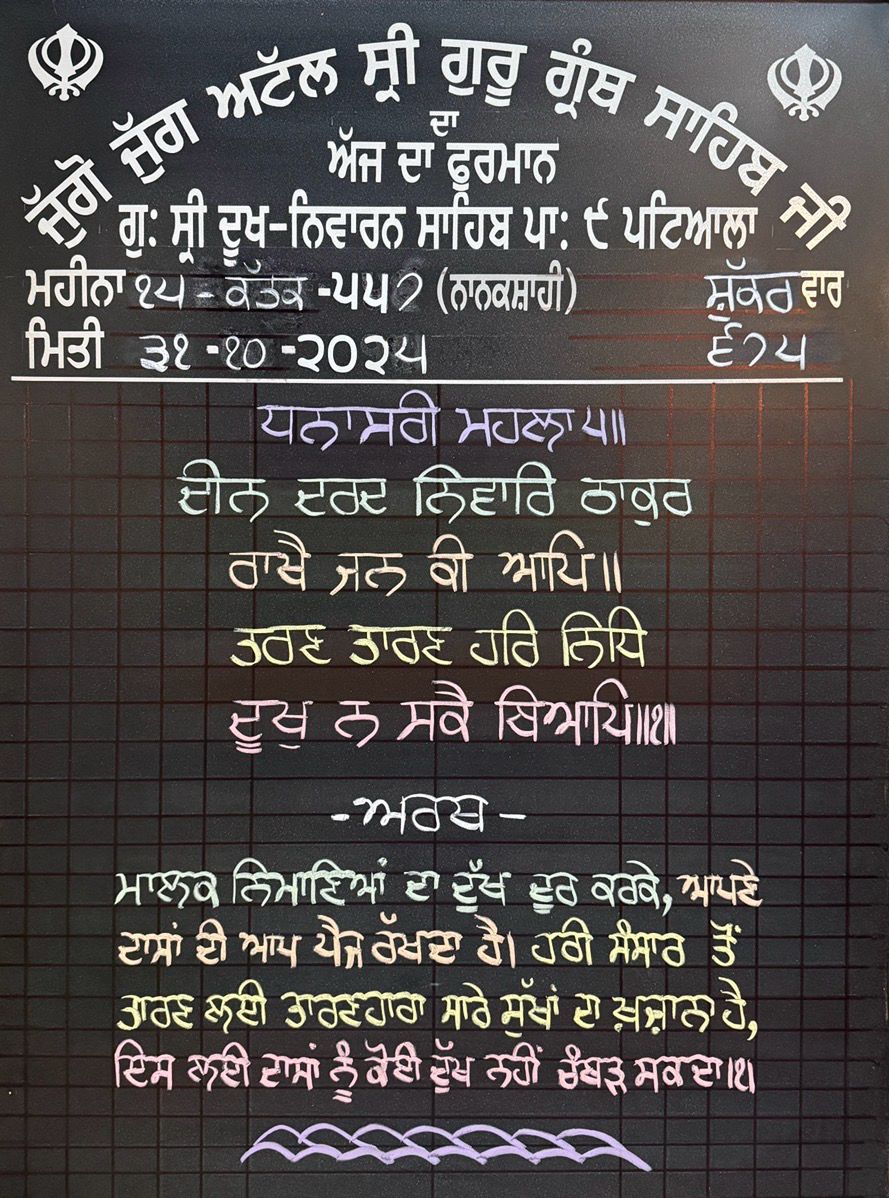 ਜੁੱਗੋ ਜੁੱਗ ਅਟੱਲ ਸ੍ਰੀ ਗੁਰੂ ਗ੍ਰੰਥ ਸਾਹਿਬ ਜੀ
ਦਾ
ਅੱਜ ਦਾ ਫੁਰਮਾਨ
ਗੁ: ਸ੍ਰੀ ਦੂਖ-ਨਿਵਾਰਨ ਸਾਹਿਬ ਪਾ: ੯ ਪਟਿਆਲਾ
ਮਹੀਨਾ ੧੫ - ਕੱਤਕ -੫੫੭ (ਨਾਨਕਸ਼ਾਹੀ) ਸ਼ੁੱਕਰ ਵਾਰ
ਮਿਤੀ ੩੧ -੧੦ -੨੦੨੫ ੬੭੫
ਧਨਾਸਰੀ ਮਹਲਾ ੫॥
ਦੀਨ ਦਰਦ ਨਿਵਾਰਿ ਠਾਕੁਰ
ਰਾਖੈ ਜਨ ਕੀ ਆਪਿ॥
ਤਰਣ ਤਾਰਣ ਹਰਿ ਨਿਧਿ
ਦੂਖੁ ਨ ਸਕੈ ਬਿਆਪਿ॥੧॥
-ਅਰਥ-
ਮਾਲਕ ਨਿਮਾਣਿਆਂ ਦਾ ਦੁੱਖ ਦੂਰ ਕਰਕੇ, ਆਪਣੇ
ਦਾਸਾਂ ਦੀ ਆਪ ਪੈਜ ਰੱਖਦਾ ਹੈ। ਹਰੀ ਸੰਸਾਰ ਤੋਂ
ਤਾਰਣ ਲਈ ਤਾਰਣਹਾਰਾ ਸਾਰੇ ਸੁੱਖਾਂ ਦਾ ਖ਼ਜ਼ਾਨਾ ਹੈ,
ਇਸ ਲਈ ਦਾਸਾਂ ਨੂੰ ਕੋਈ ਦੁੱਖ ਨਹੀਂ ਚੰਬੜ ਸਕਦਾ।੧।